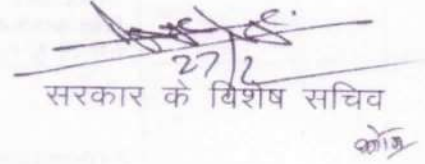 27/2
सरकार के विशेष सचिव